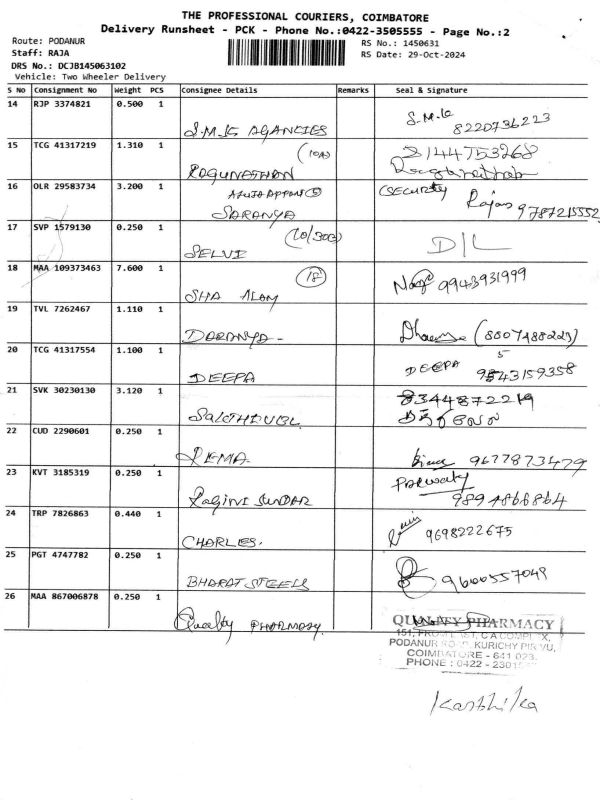 THE PROFESSIONAL COURIERS, COIMBATORE
Delivery Runsheet - PCK - Phone No.:0422-3505555 - Page No.:2
Route: PODANUR
Staff: RAJA
DRS No.: DCJB145063102
Vehicle: Two Wheeler Delivery
RS No.: 1450631
RS Date: 29-Oct-2024
S No Consignment No Weight PCS Consignee Details Remarks Seal & Signature
14 RJP 3374821 0.500 1 S.M.K AGANCIES S.M.K 8220736223
15 TCG 41317219 1.310 1 RAGUNATHAN (10A) 2144753268
16 OLR 29583734 3.200 1 SARANYA (Security Rajan 9787215552
17 SVP 1579130 0.250 1 SELVI (10/303) D/L
18 MAA 109373463 7.600 1 SHA ALAM (18) 9943931999
19 TVL 7262467 1.110 1 DARANYA - (8807488223)
20 TCG 41317554 1.100 1 DEEPA DEEPA 9543159358
21 SVK 30230130 3.120 1 SAKTHIVEL 8344872219
சக்திவேல்
22 CUD 2290601 0.250 1 REMA 9677873479
23 KVT 3185319 0.250 1 RAGINI SUNDAR Parwaty 9894866864
24 TRP 7826863 0.440 1 CHARLES. 9698222675
25 PGT 4747782 0.250 1 BHARAT STEELS 9600557049
26 MAA 867006878 0.250 1 Quality PHARMASY.
QUALITY PHARMACY
151, C A COMPLEX,
PODANUR ROAD, KURICHY PIRIVU,
COIMBATORE - 641 023.
PHONE : 0422 - 2301
Karthika